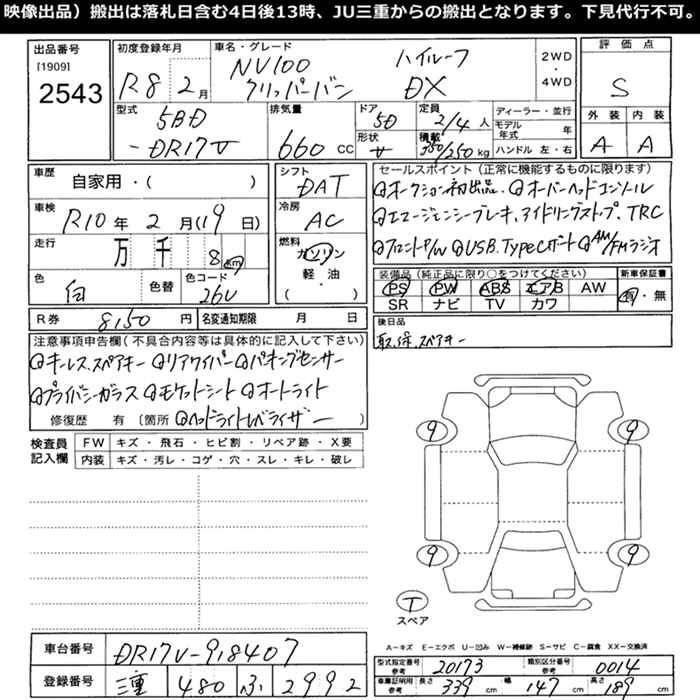 映像出品）搬出は落札日含む4日後13時、JU三重からの搬出となります。下見代行不可。
出品番号
[1909]
2543
初度登録年月
R8 2月
車名・グレード
NV100 ハイルーフ
クリッパーバン DX
2WD
・
4WD
評価点
S
型式
5BD
-DR17V
排気量
660 CC
ドア
5D
形状
定員
2/4人
積載
350/250kg
ディーラー・並行
モデル年式 年
ハンドル 左・右
外装 内装
A A
車歴
自家用・( )
車検
R10年 2月(19日)
走行
万 千 8 km
色
白
色替
色コード
26U
シフト
DAT
冷房
AC
燃料
ガソリン
軽・油
( )
セールスポイント（正常に機能するものに限ります）
オークション初出品、オーバーヘッドコンソール
エマージェンシーブレーキ、アイドリングストップ、TRC
フロントP/W USB、TypeCポート AM/FMラジオ
装備品（純正品に限り○をつけてください）
PS PW ABS エアB AW
SR ナビ TV カワ
新車保証書
有・無
R券 8,150円
名変通知期限 月 日
後日品
取、保、スペアキー
注意事項申告欄（不具合内容等は具体的に記入して下さい）
キーレス、スペアキー リヤワイパー パーキングセンサー
プライバシーガラス モケットシート オートライト
修復歴 有〔箇所 ヘッドライトレベライザー 〕
検査員記入欄
FW キズ・飛石・ヒビ割・リペア跡・X要
内装 キズ・汚レ・コゲ・穴・スレ・キレ・破レ
9 9
9 9
T
スペア
A-キズ E-エクボ U-凹み W-補修跡 S-サビ C-腐食 XX-交換済
車台番号 DR17V-918407
登録番号 三重 480 ふ 2992
型式指定番号 参考 20173
類別区分番号 参考 0014
車庫証明用 参考 長さ 339cm 幅 147cm 高さ 189cm